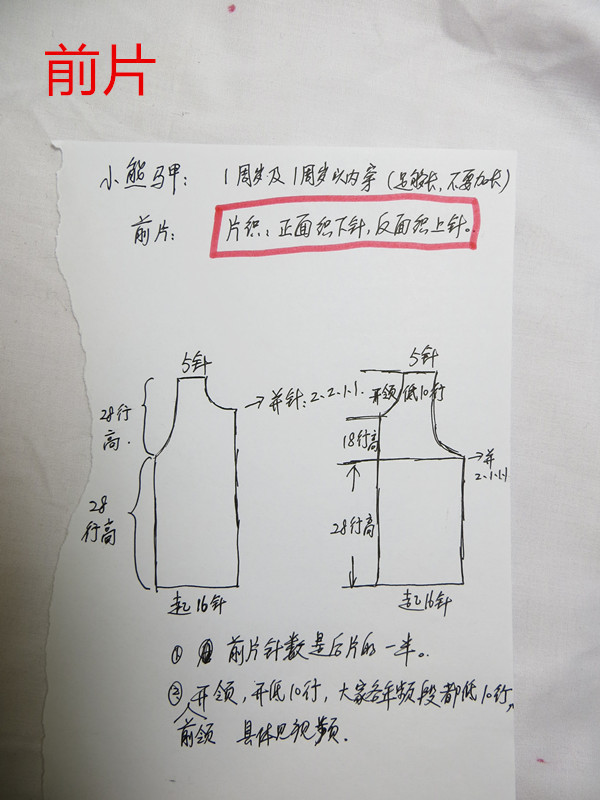 前片
小熊马甲： 1周岁及1周岁以内穿（足够长，不要加长）
前片： 片织：正面织下针，反面织上针。
5针
28行高.
28行高
→并针：2.2.1.1.
起16针
5针
开领低10行
18行高
→并2.1.1.1
28行高
起16针
① 前片针数是后片的一半。
② 开领，开低10行，大家各年龄段都低10行，
前领 具体见视频.